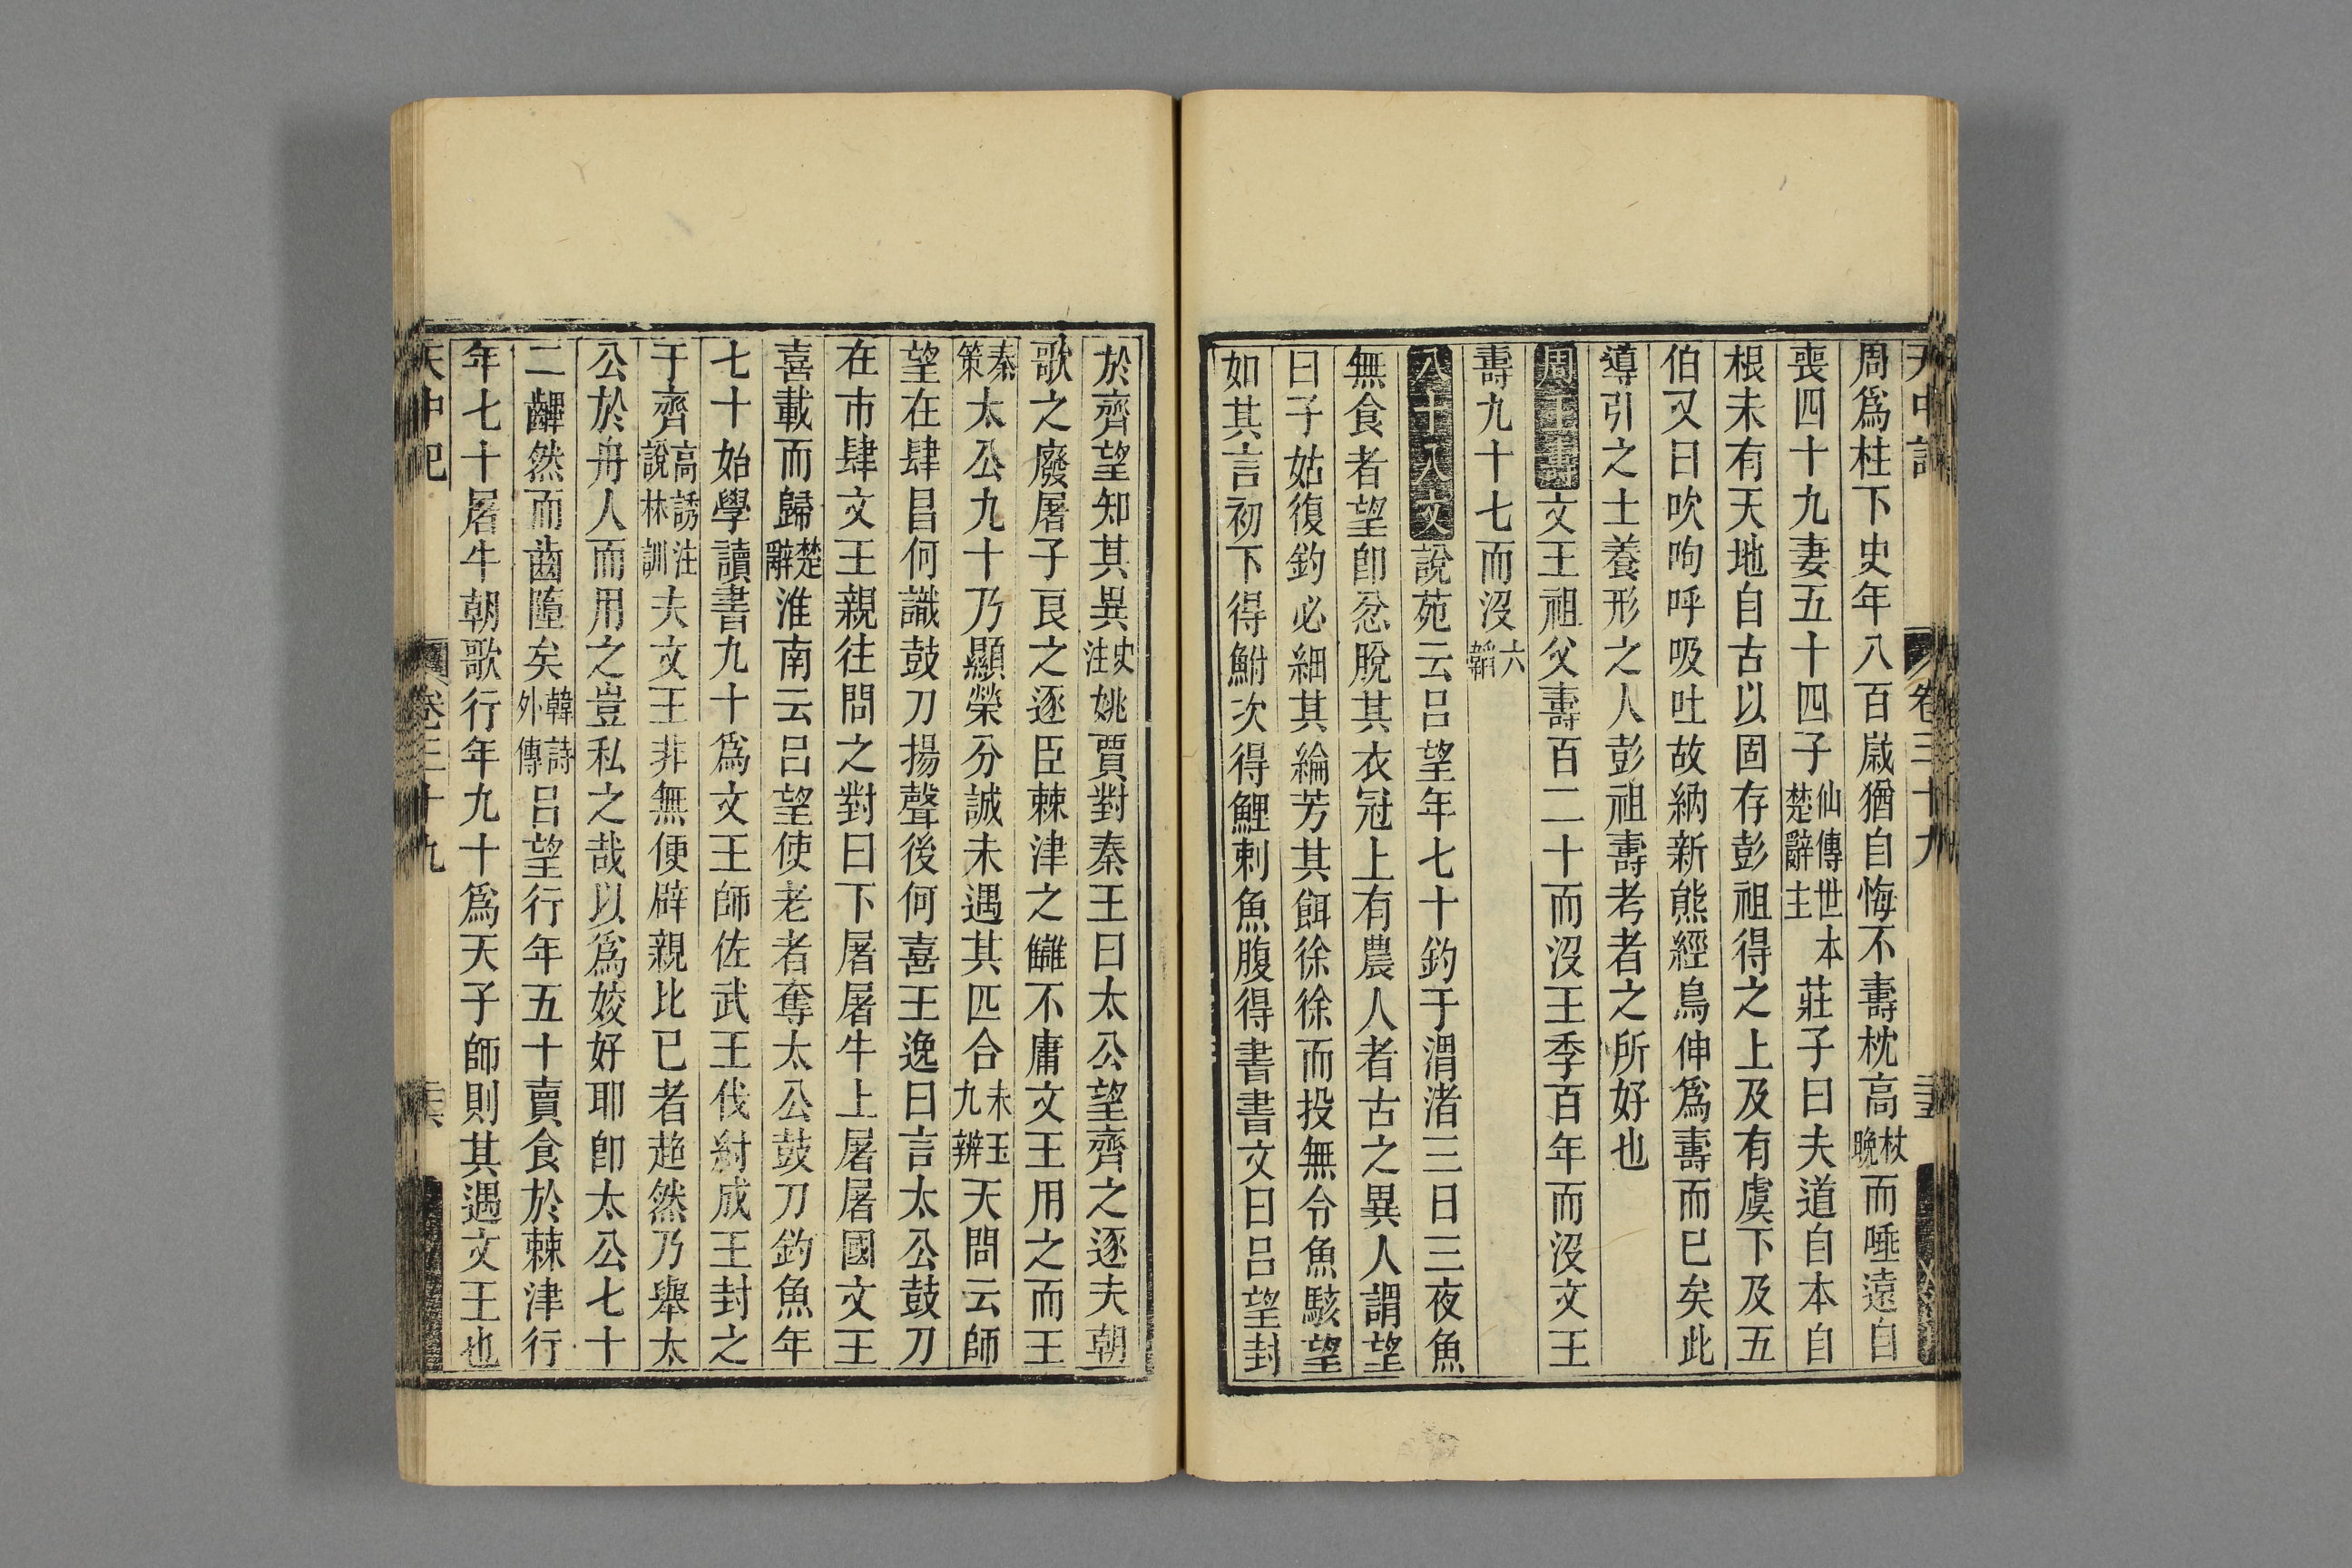 天中記 卷三十九
周爲柱下史年八百歳猶自悔不壽枕高杖晩而唾遠自
喪四十九妻五十四子仙傳世本楚辭主莊子曰夫道自本自
根未有天地自古以固存彭祖得之上及有虞下及五
伯又曰吹呴呼吸吐故納新熊經鳥伸爲壽而已矣此
導引之士養形之人彭祖壽考者之所好也
周王壽文王祖父壽百二十而沒王季百年而沒文王
壽九十七而沒六韜
八十入文說苑云吕望年七十釣于渭渚三日三夜魚
無食者望卽忿脫其衣冠上有農人者古之異人謂望
曰子姑復釣必細其綸芳其餌徐徐而投無令魚駭望
如其言初下得鮒次得鯉刺魚腹得書書文曰吕望封
於齊望知其異史注姚賈對秦王曰太公望齊之逐夫朝
歌之廢屠子良之逐臣棘津之讎不庸文王用之而王
秦策太公九十乃顯榮兮誠未遇其匹合未玉九辨天問云師
望在肆昌何識鼓刀揚聲後何喜王逸曰言太公鼓刀
在市肆文王親往問之對曰下屠屠牛上屠屠國文王
喜載而歸楚辭淮南云吕望使老者奪太公鼓刀釣魚年
七十始學讀書九十爲文王師佐武王伐紂成王封之
于齊高誘注說林訓夫文王非無便辟親比已者超然乃舉太
公於舟人而用之豈私之哉以爲姣好耶卽太公七十
二齳然而齒墮矣韓詩外傳吕望行年五十賣食於棘津行
年七十屠牛朝歌行年九十爲天子師則其遇文王也
天中記 卷三十九